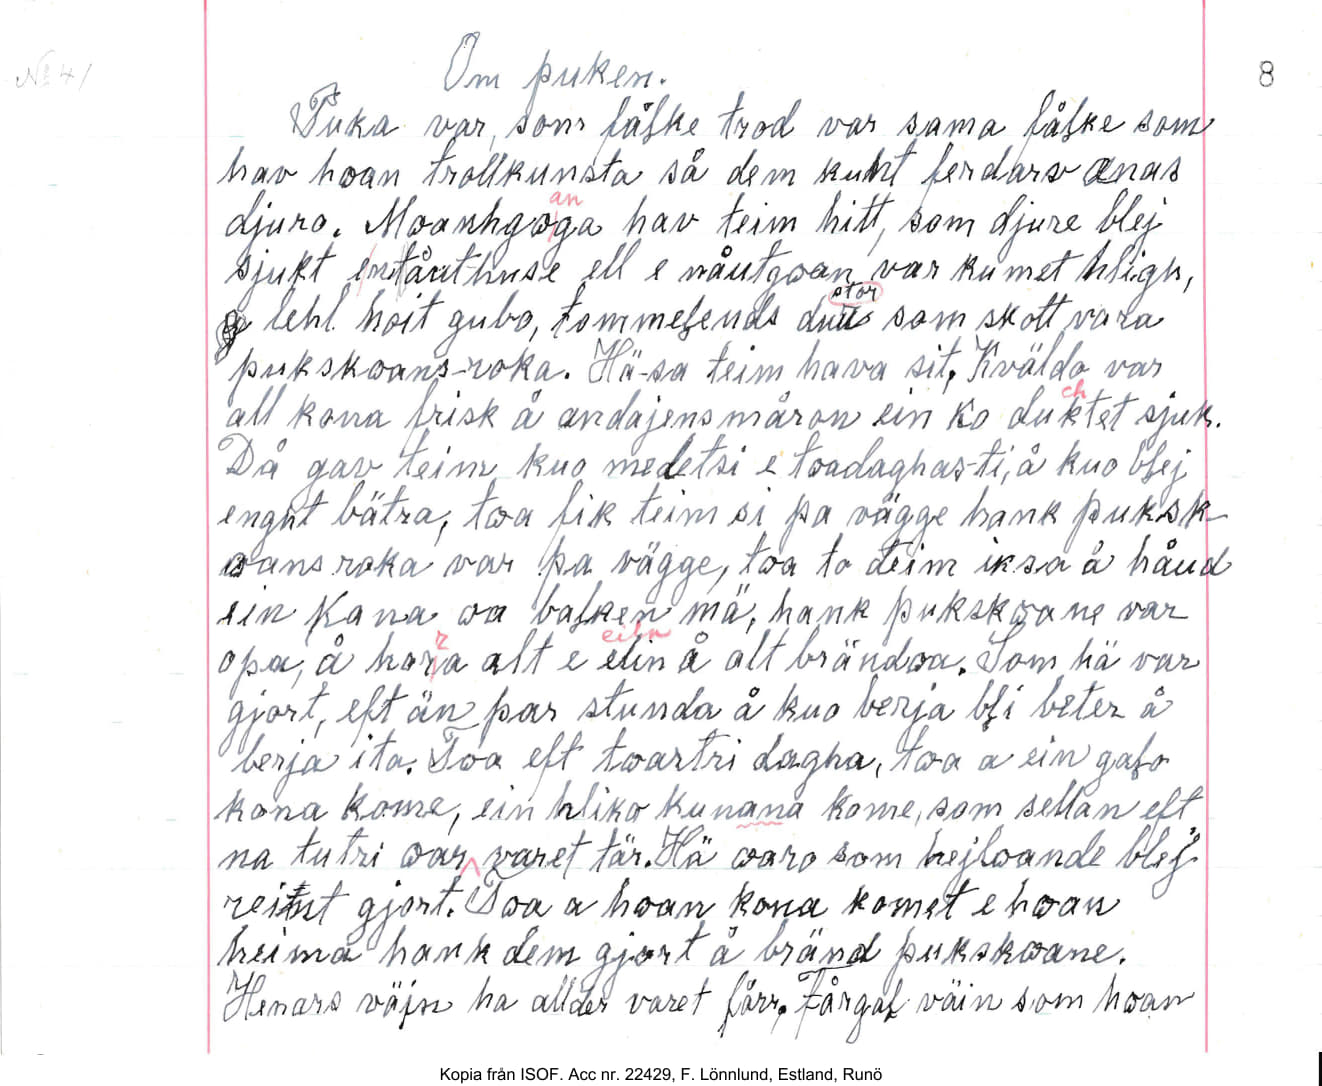 № 41
8
Om puken.
Puka var, som fålke trod var sama fålke som
hav hoan trollkunsta så dem kunt ferdars anas
djuro. Moanhgoga hav teim hitt, som djure blej
an
sjukt entåuthuse ell e nåutgoan var kumet hligh,
stor
lehl hoit gubo, tommelends duu som skott vara
pukskoans-roka. Hä-sa teim hava sit, Kväldo var
all kona frisk å andajens måron ein ko duktet sjuk.
ch
Då gav teim kuo medetsi e toadaghas-ti, å kuo blej
enght bätra, toa fik teim si pa vägge hank puksk-
oans roka var pa vägge, toa to teim iksa å håud
ein Kana oa balken mä, hank pukskoane var
opa, å hora alt e elin å alt brändoa. Som hä var
r
eiln
gjort, eft än par stunda å kuo berja bli beter å
berja ita. Toa eft toartri dagha, toa a ein galo
kona kome, ein hliko kunana kome, som sellan eft
na tutri oar varet tär. Hä oaro som hejloande blej
gjort. Toa a hoan kona komet e hoan
heima hank dem gjort å bränd pukskoane.
Henars väjn ha allder varet fårr. Fårgal väin som hoan
Kopia från ISOF. Acc nr. 22429, F. Lönnlund, Estland, Runö